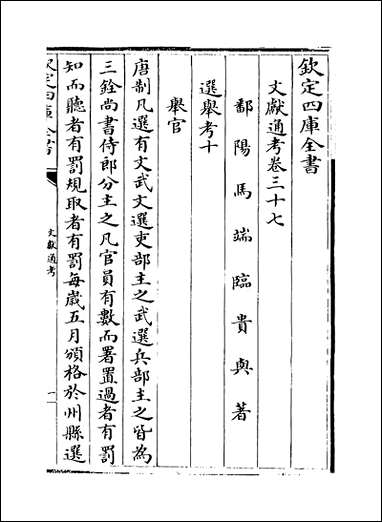 欽定四庫全書
文獻通考卷三十七
鄱陽馬端臨貴與著
選舉考十
舉官
唐制凡選有文武文選吏部主之武選兵部主之皆為
三銓尚書侍郎分主之凡官員有數而署置過者有罰
知而聽者有罰規取者有罰每歲五月頒格於州縣選
文獻通考
一